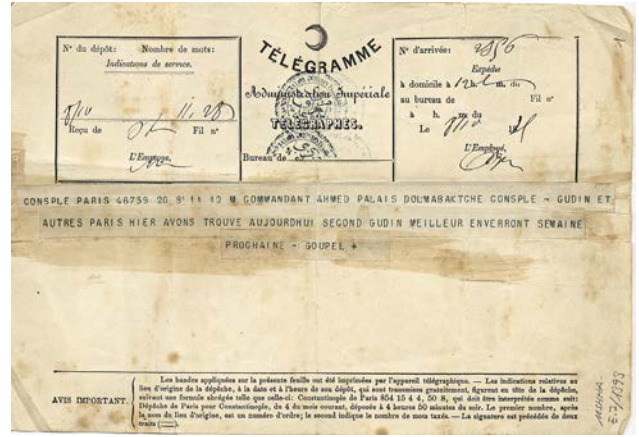 N° du dépôt: Nombre de mots:
Indications de service.
8/10 11.28
Reçu de Fil n°
L'Employé,
TÉLÉGRAMME
Administration Impériale
TÉLÉGRAPHES.
Bureau de
N° d'arrivée:
Expédié
à domicile à 12 h. m. du
au bureau de Fil n°
à h. m. du
Le 8/10
L'Employé,
1
CONSPLE PARIS 46739 20 8' 11 12 M COMMANDANT AHMED PALAIS DOLMABAKTCHE CONSPLE - GUDIN ET
AUTRES PARIS HIER AVONS TROUVE AUJOURDHUI SECOND GUDIN MEILLEUR ENVERRONT SEMAINE
PROCHAINE - GOUPEL +
AVIS IMPORTANT.
Les bandes appliquées sur la présente feuille ont été imprimées par l'appareil télégraphique. — Les indications relatives au
lieu d'origine de la dépêche, à la date et à l'heure de son dépôt, qui sont transmises gratuitement, figurent en tête de la dépêche,
suivant une formule abrégée telle que celle-ci: Constantinople de Paris 854 15 4 4, 50 S, qui doit être interprétée comme suit:
Dépêche de Paris pour Constantinople, de 4 du mois courant, déposée à 4 heures 50 minutes du soir. Le premier nombre, après
la nom du lieu d'origine, est un numéro d'ordre; le second indique le nombre de mots taxés. — La signature est précédée de deux
traits
E-7/1393